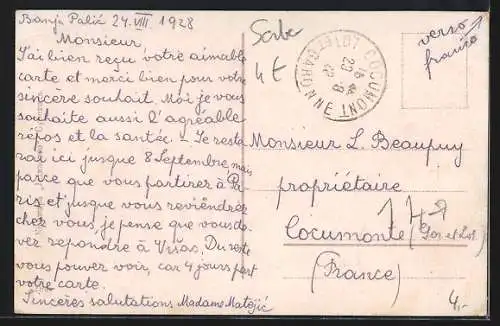 Banja Palić 24.VIII 1928
Monsieur
J'ai bien reçu votre aimable
carte et merci bien pour votre
sincère souhait. Moi je vous
souhaite aussi l'agréable
repos et la santée. – Je resta
rai ici jusque 8 Septembre mais
parce que vous partirez à Pa
ris et jusque vous reviéndrez
chez vous, je pense que vous de
vez repondre à Vršac. Du reste
vous pouvez voir, car 4 jours part
votre carte.
Sincères salutations Madame Matejić
Serbe
4 t
COCUMONT
LOT ET GARONNE
verso
franco
Monsieur L. Beaupuy
propriétaire
Cocumonte (Gar. et Lot.)
(France)
4,-